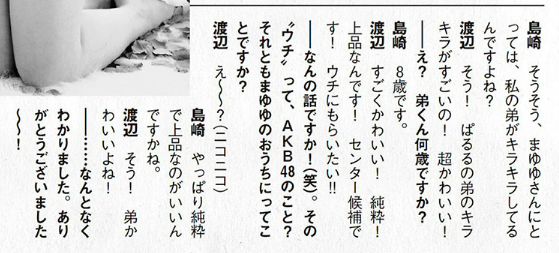 島崎　そうそう、まゆゆさんにと
っては、私の弟がキラキラしてる
んですよね？
渡辺　そう！　ぱるるの弟のキラ
キラがすごいの！　超かわいい！
――え？　弟くん何歳ですか？
島崎　8歳です。
渡辺　すごくかわいい！　純粋！
上品なんです！　センター候補で
す！　ウチにもらいたい!!
――なんの話ですか！（笑）。その
〝ウチ〟って、AKB48のこと？
それともまゆゆのおうちにってこ
とですか？
渡辺　え〜〜？（ニコニコ）
島崎　やっぱり純粋
で上品なのがいいん
ですかね。
渡辺　そう！　弟か
わいいよね！
――……なんとなく
わかりました。あり
がとうございました
〜〜！